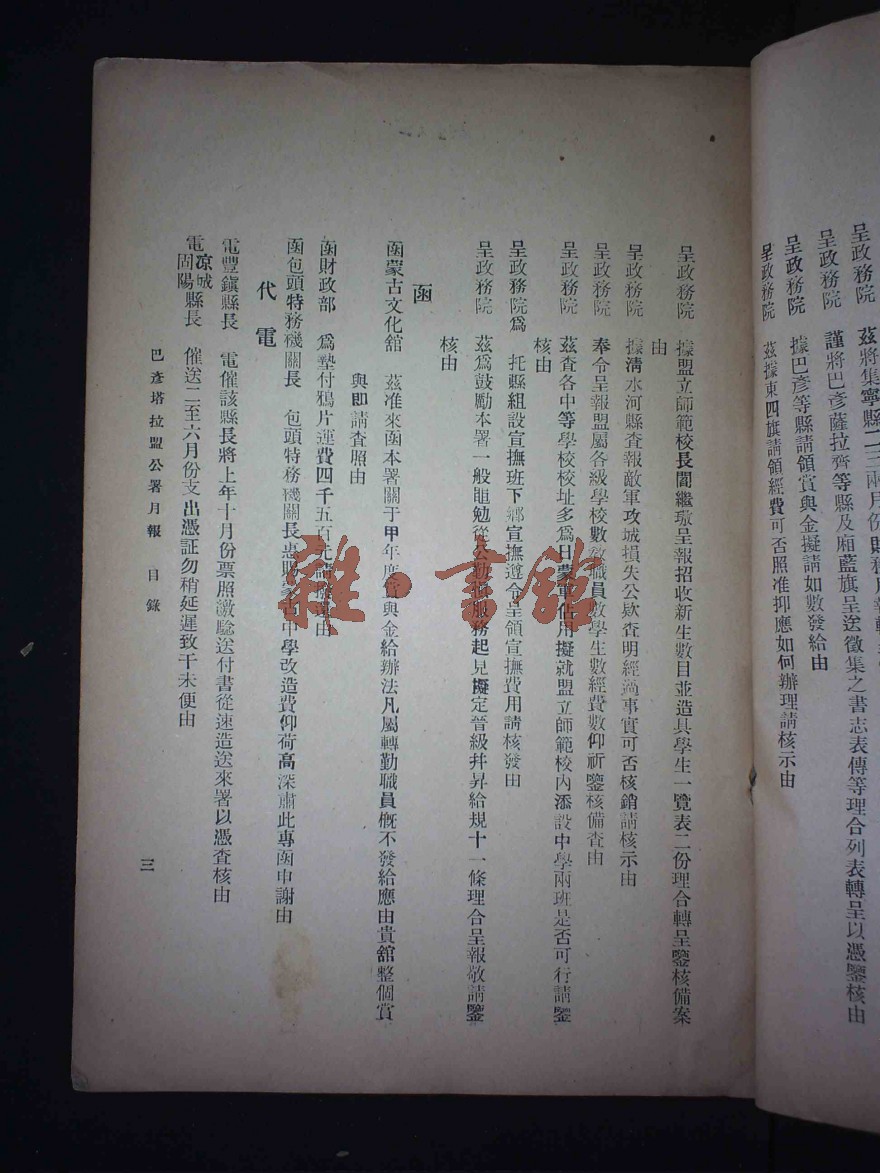 呈政務院 茲將集寧縣
呈政務院 謹將巴彥薩拉齊等縣及廂藍旗呈送徵集之書志表傳等理合列表轉呈以憑鑒核由
呈政務院 據巴彥等縣請領賞與金擬請如數發給由
呈政務院 茲據東四旗請領經費可否照准抑應如何辦理請核示由
呈政務院 據盟立師範校長閻繼璈呈報招收新生數目並造具學生一覽表二份理合轉呈鑒核備案
由
呈政務院 據淸水河縣查報敵軍攻城損失公欵查明經過事實可否核銷請核示由
呈政務院 奉令呈報盟屬各級學校數敎職員數學生數經費數仰祈鑒核備查由
呈政務院 茲查各中等學校校址多爲日蒙軍佔用擬就盟立師範校內添設中學兩班是否可行請鑒
核由
呈政務院爲 托縣組設宣撫班下鄕宣撫遵令呈領宣撫費用請核發由
呈政務院 茲爲鼓勵本署一般黽勉從公勤服務起見擬定晉級幷昇給規十一條理合呈報敬請鑒
核由
函
函蒙古文化舘 茲准來函本署關于甲年度賞與金給辦法凡屬轉勤職員槪不發給應由貴舘整個賞
與即請查照由
函財政部 爲墊付鴉片運費四千五百元請由
函包頭特務機關長 包頭特務機關長惠賜蒙古中學改造費仰荷高深肅此專函申謝由
代電
電豐鎭縣長 電催該縣長將上年十月份票照繳驗送付書從速造送來署以憑查核由
電凉城固陽縣長 催送二至六月份支出憑証勿稍延遲致干未便由
巴彥塔拉盟公署月報 目錄
三
雜·書舘